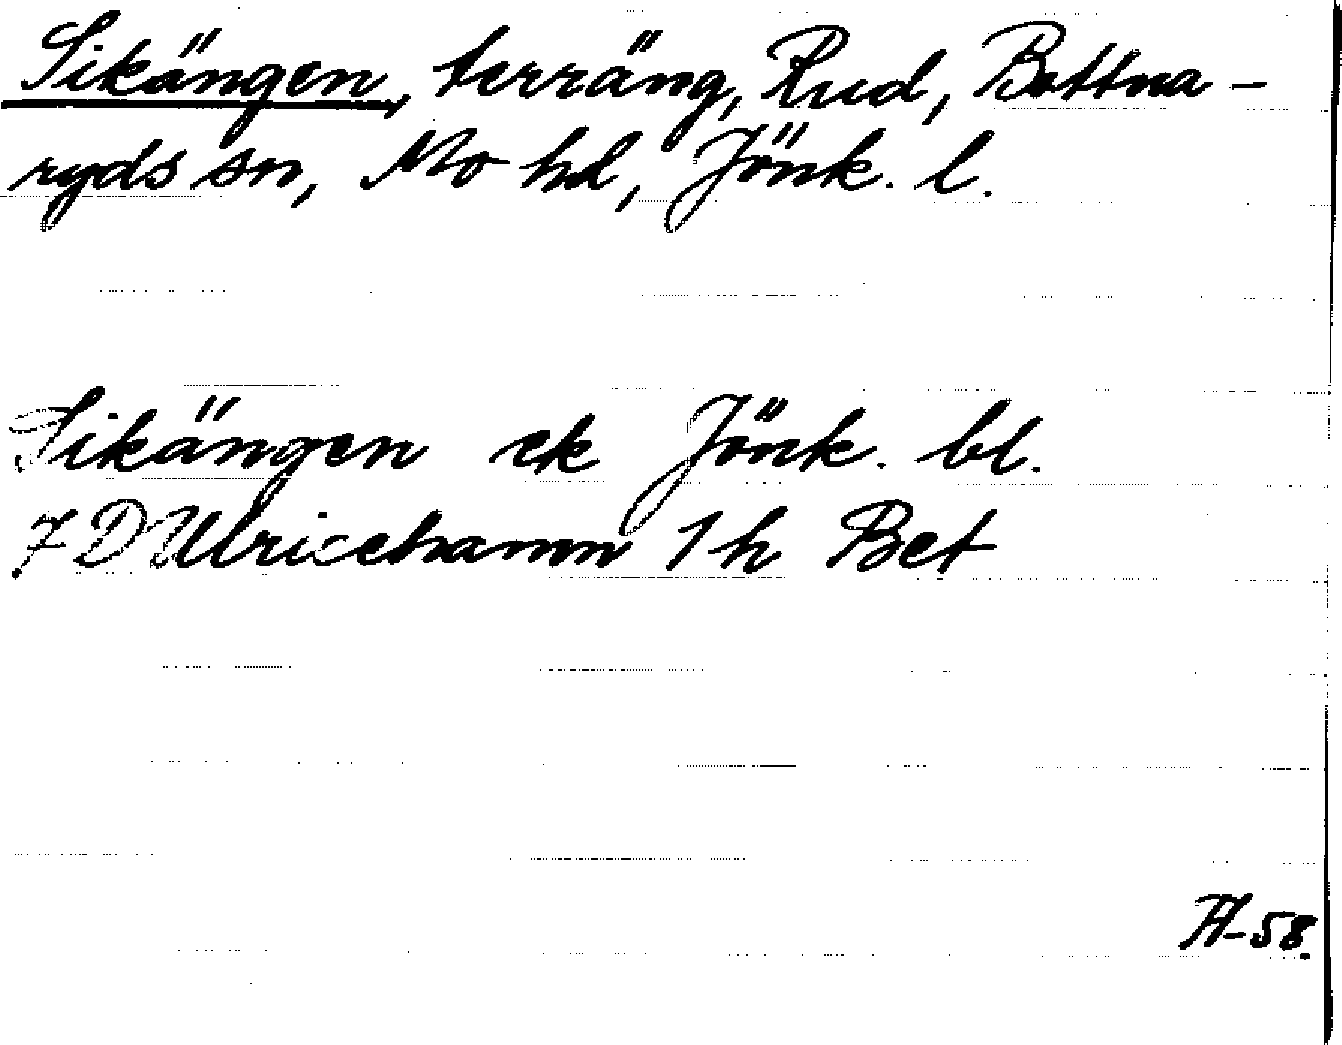 Sikängen, terräng, Rud, Bottna-
ryds sn, Mo hd, Jönk. l.
Sikängen ek Jönk. bl.
7 D Ulricehamn 1 h Bet
H-58.